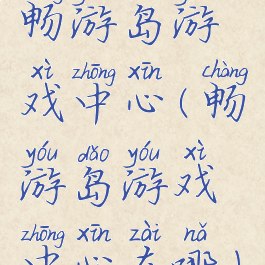 畅游岛游
xì zhōng xīn chàng
戏中心(畅
yóu dǎo yóu xì
游岛游戏
zhōng xīn zài nǎ
中心在哪)